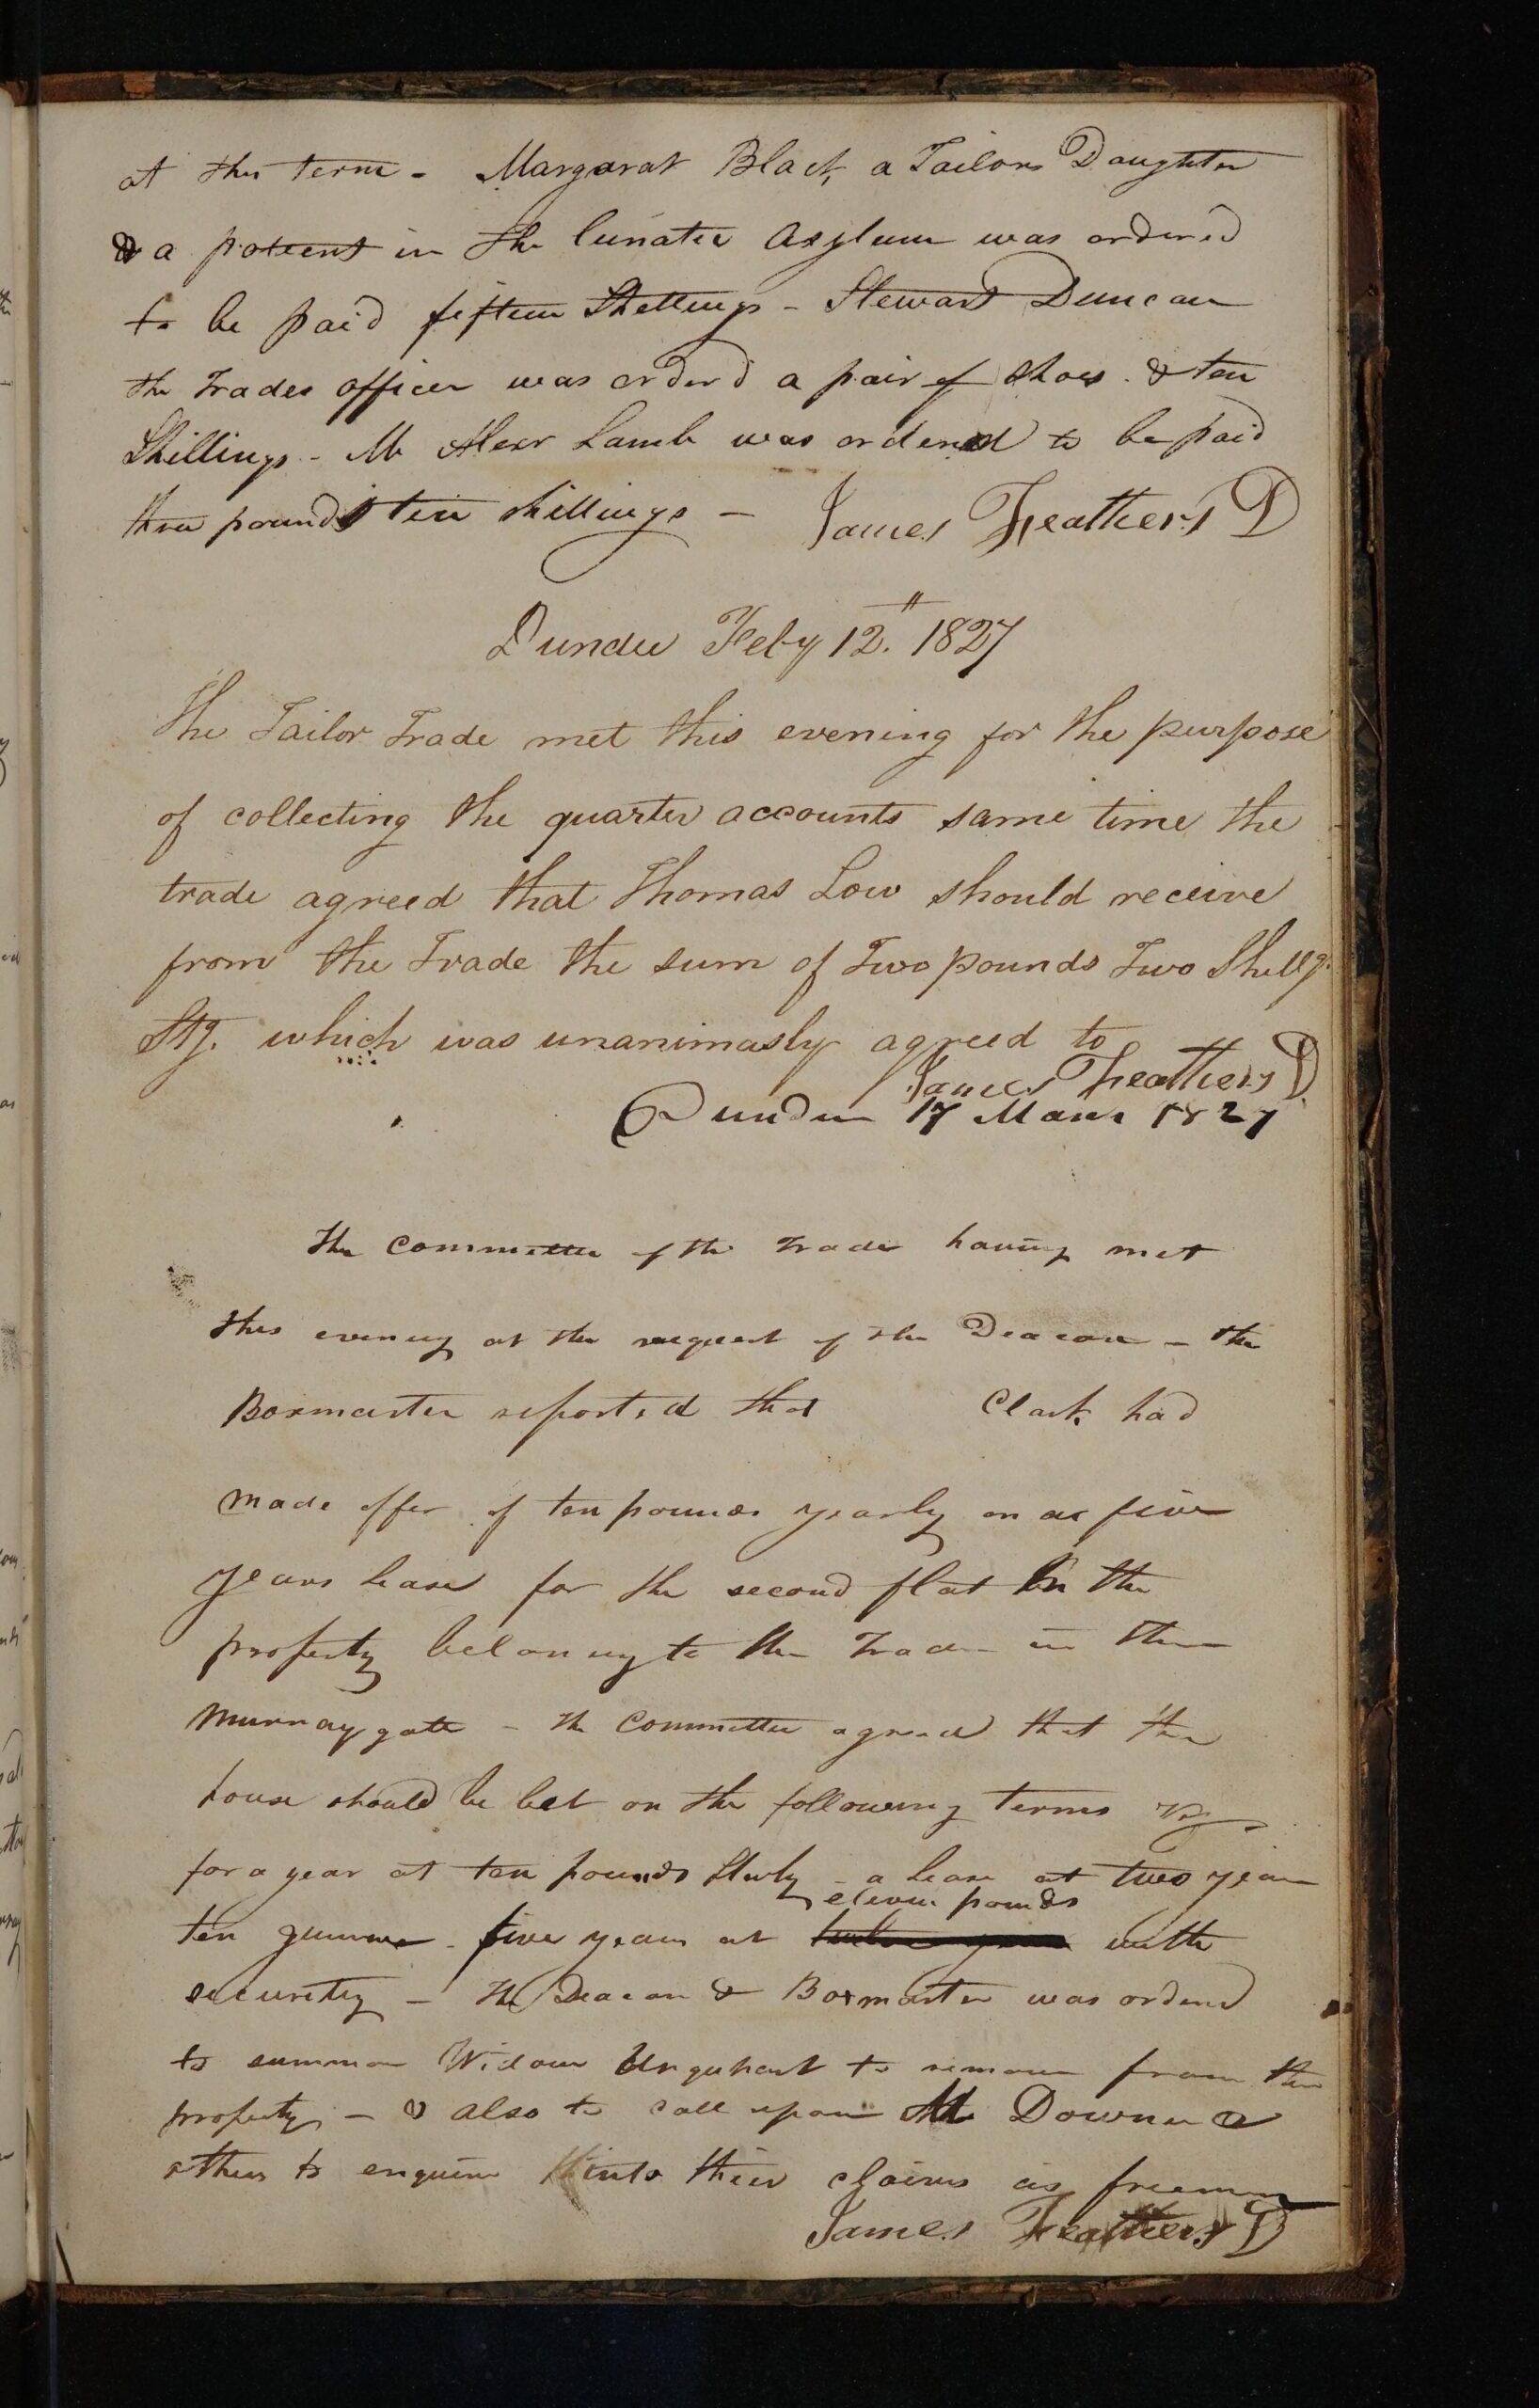 at this term - Margarat Black a Tailors Daughter
& a patient in the lunatic Asylum was ordered
to be paid fifteen Shillings - Stewart Duncan
the Trades officer was orderd a pair of shoes & ten
Shillings - Mr Alexr Lamb was ordered to be paid
three pounds ten shillings - James Feathers D
Dundee Feby 12. 1827
The Tailor Trade met this evening for the purpose
of collecting the quarter accounts same time the
trade agreed that Thomas Low should receive
from the Trade the sum of Two pounds Two Shillgs
Stg. which was unanimasly agreed to
James Feathers D
Dundee 17 March 1827
The committee of the Trade having met
this evening at the request of the Deacon - the
Boxmaster reported that Clark had
made offer of ten pounds yearly on a five
years lease for the second flat in the
property belonging to the Trade in the
Murraygate - the committee agreed that the
house should be let on the following terms viz
for a year at ten pounds Sterly - a lease at two years
eleven pounds
ten guineas - five years at with
security - The Deacon & Boxmaster was ordered
to summon Widow Urquhart to remove from the
property - & also to call upon Mr Downie &
others to enquire into their claims as freemen
James Feathers D